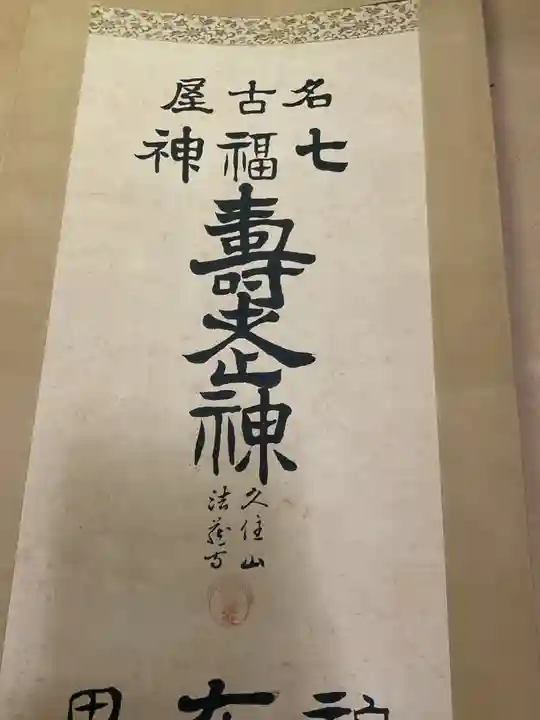 名古屋
七福神
壽老神
久住山
法蔵寺